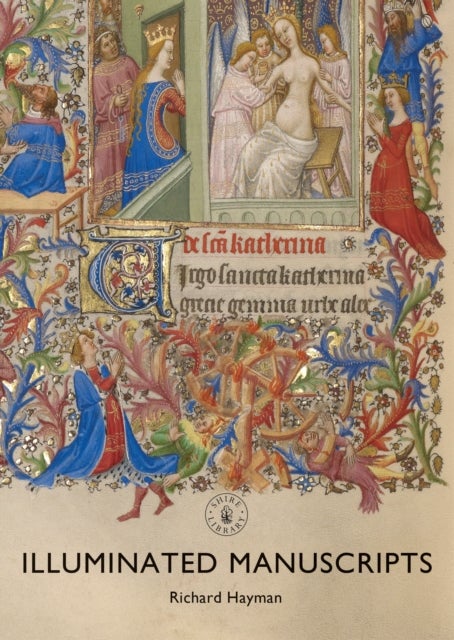 de sca katherina
Virgo sancta katherina
grecie gemma urbe alex
SHIRE LIBRARY
ILLUMINATED MANUSCRIPTS
Richard Hayman